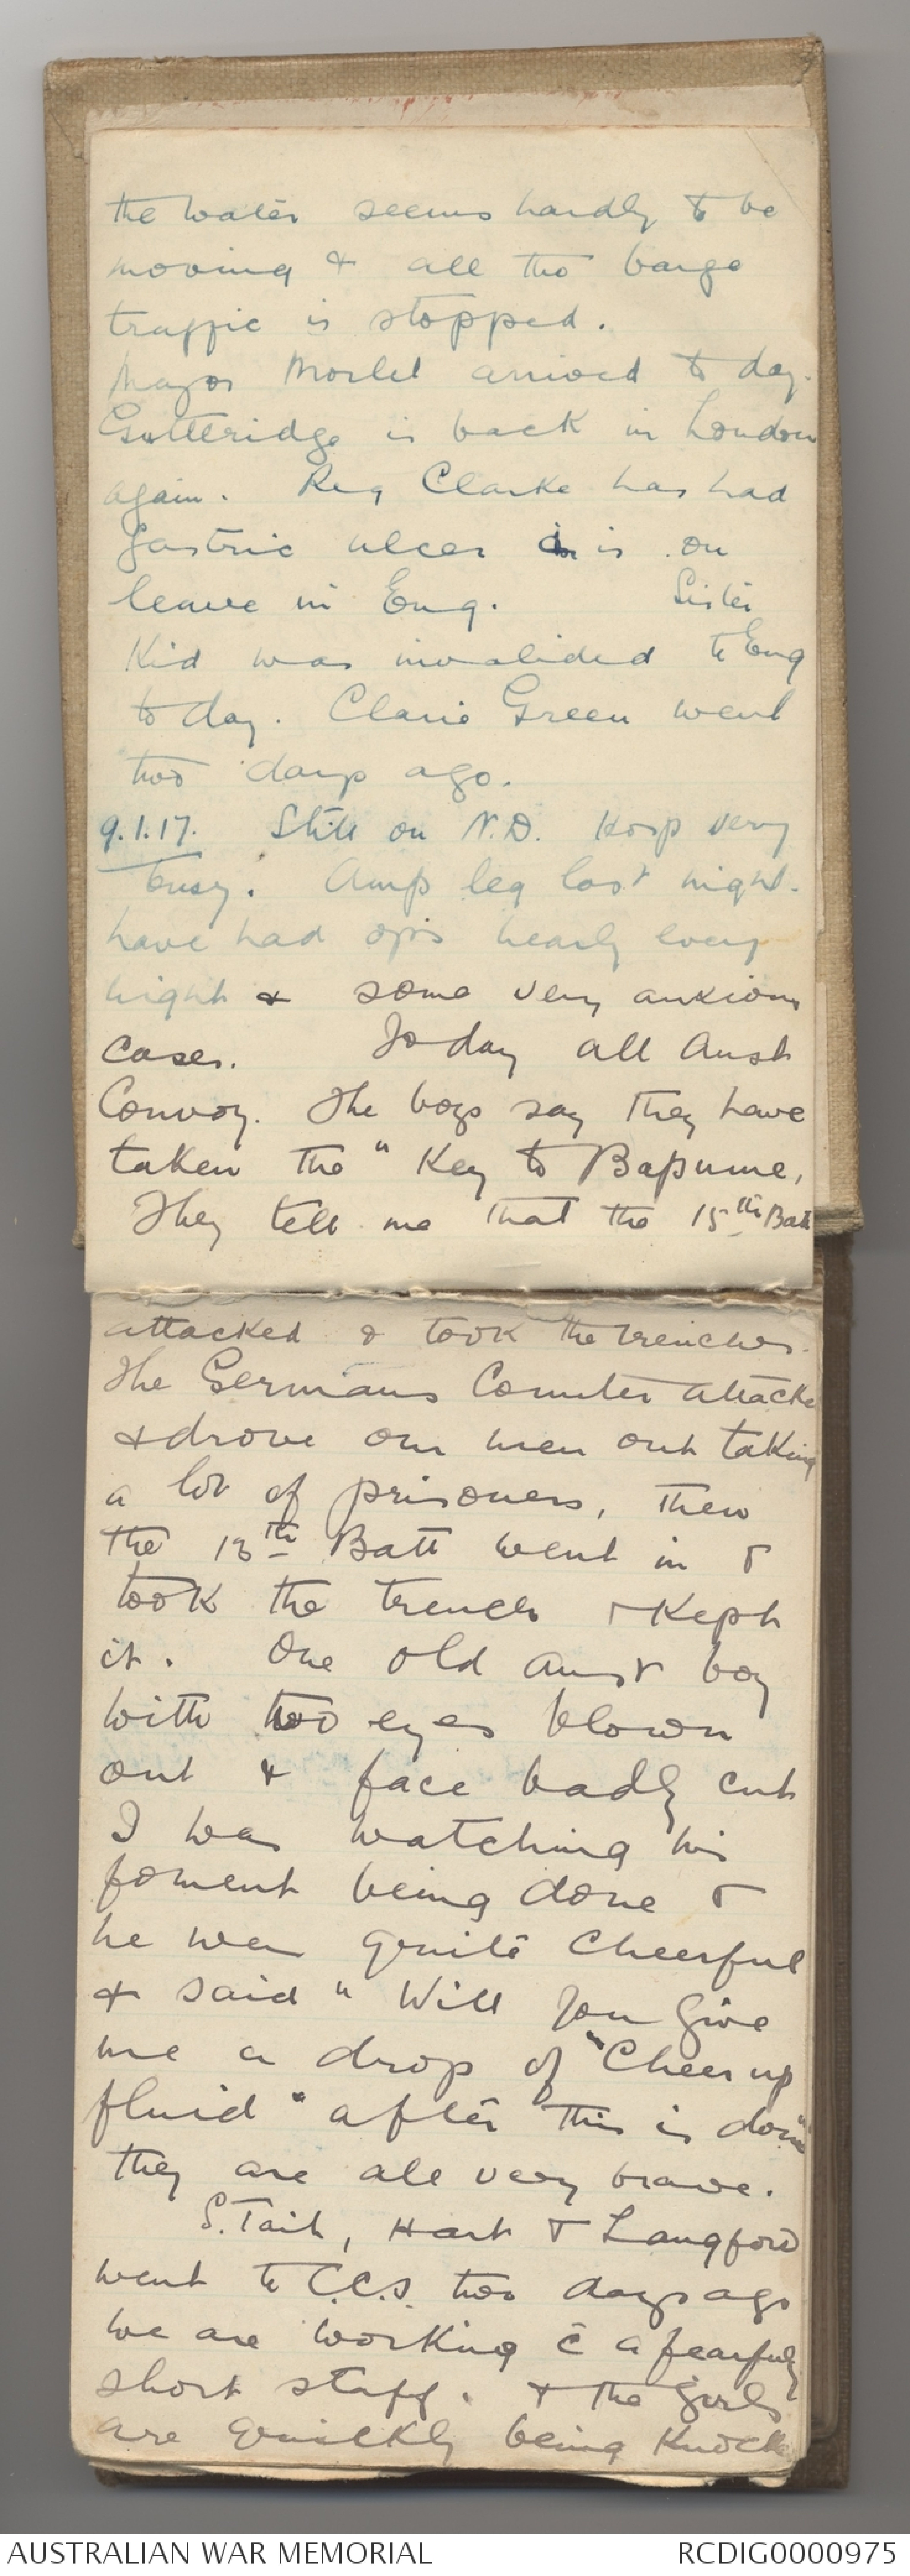 the water seems hardly to be
moving & all the barge
traffic is stopped.
Major Morlet arrived to day.
Gutteridge is back in London
again. Reg Clarke has had
gastric ulcer is on
leave in Eng. Sister
Kid was invalided to Eng
to day. Clarie Green went
two days ago.
9.1.17. Still on N.D. Hosp very
busy. Amp leg last night.
have had op's nearly every
night & some very anxious
cases. To day all Aust
Convoy. The boys say they have
taken the "Key to Bapume,
They tell me that the 15th Batt
attacked & took the trenches.
The Germans Counter attacke
& drove our men out taking
a lot of prisoners, then
the 13th Batt went in &
took the trench & kept
it. One old Aust boy
with two eyes blown
out & face badly cut
I was watching his
foment being done &
he was quite cheerful
& said "Will you give
me a drop of "Cheer up
fluid" after this is done"
they are all very brave.
S. Tait, Hart & Langford
went to C.C.S. two days ago
we are working c̄ a fearfuly
short staff. & the girls
are quickly being knock
AUSTRALIAN WAR MEMORIAL
RCDIG0000975